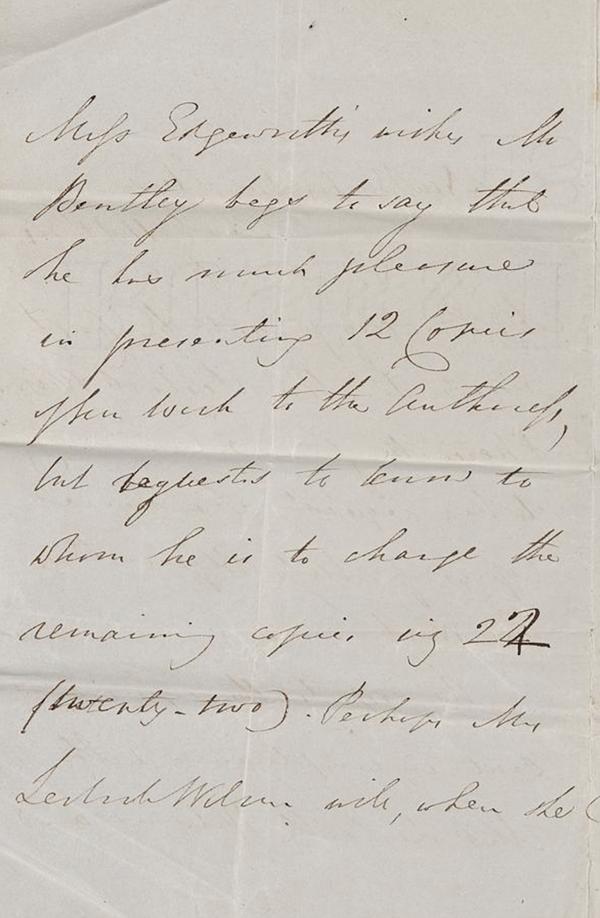 Miss Edgeworth's wishes Mr
Bentley begs to say that
he has much pleasure
in presenting 12 Copies
of her work to the Authoress,
but requests to know to
whom he is to charge the
remaining copies viz 22
(twenty-two). Perhaps Mrs
Wilson will, when she